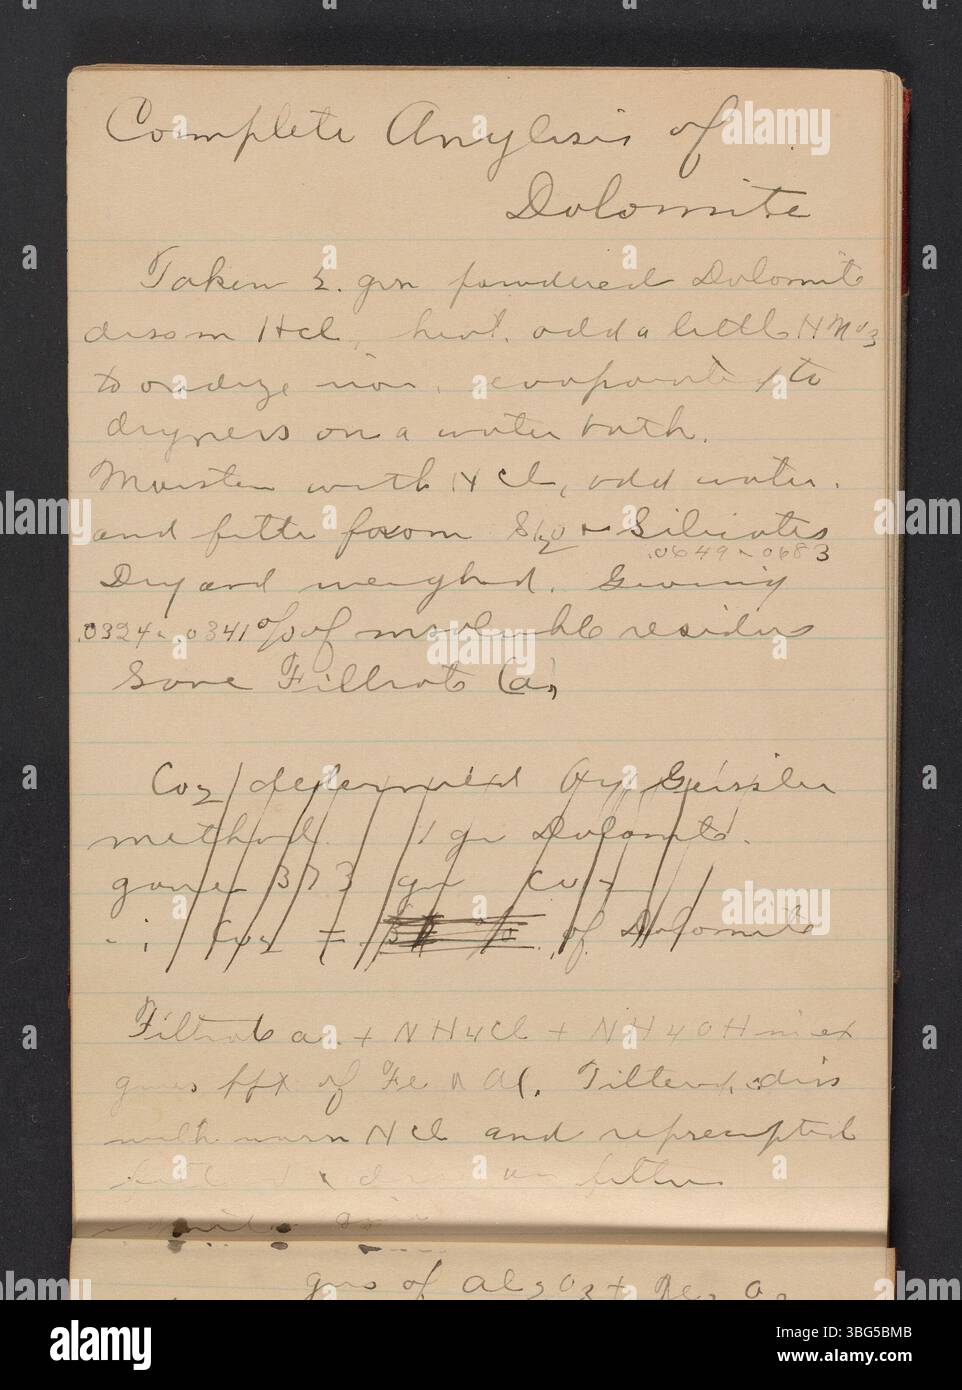 Complete Anylisis of
Dolomite
Taken 2. gm powdered Dolomite
diss in HCl, heat. add a little HNO3
to oxidize iron. evaporate to
dryness on a water bath.
Moisten with HCl, add water.
and filter from SiO2 + Silicates
.0649 .0683
Dry and weighed. Giving
.0324 .0341 % of insoluble residue
Save Filtrate (a)
CO2 determined by Geissler
method. 1 gm Dolomite.
gave 373 gm CO2
∴ CO2 = % of Dolomite
Filtrate a + NH4Cl + NH4OH in ex
gives ppt of Fe & Al. Filtered, diss
with warm HCl and reprecipted
filter
gms of Al2O3 +
a alamy
alamy
Image ID: 3BG5BMB
www.alamy.com